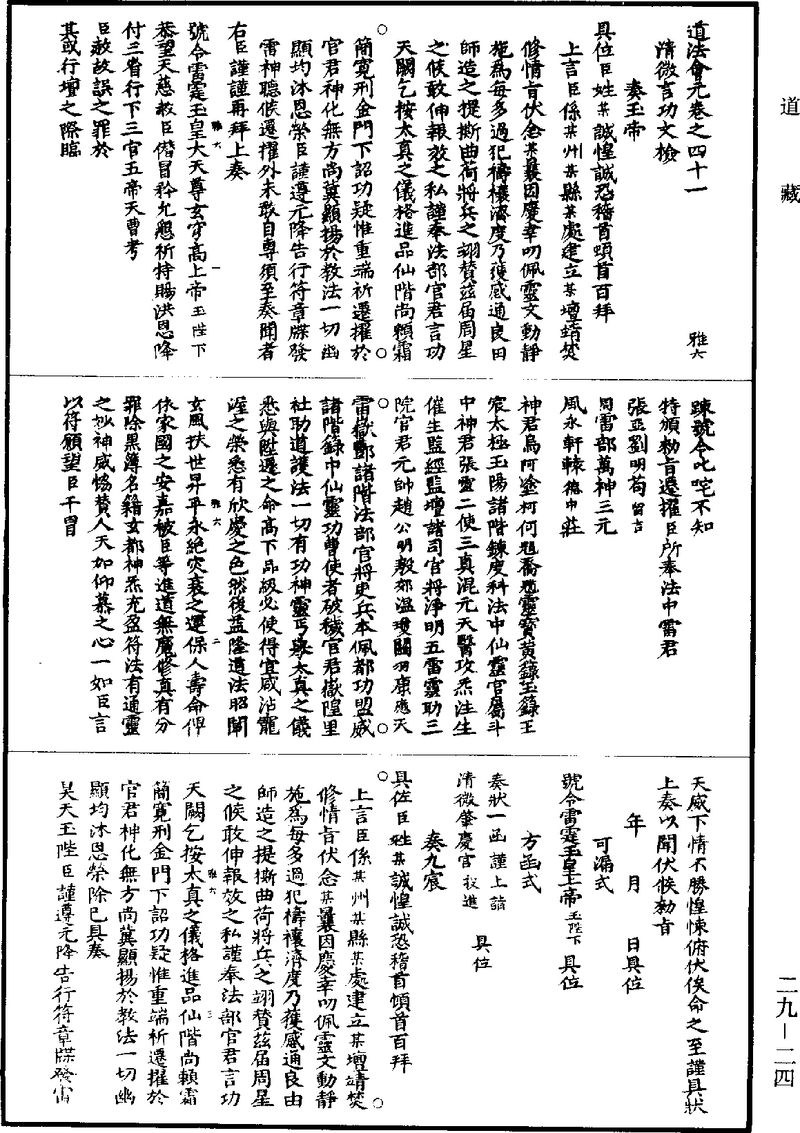 道藏
道法會元卷之四十一
雅六
清微言功文檢
奏玉帝
具位臣姓某誠惶誠恐稽首頓首百拜
上言臣係某州某縣某處建立某壇靖焚
修情旨伏念某曩因慶幸叨佩靈文動靜
施爲每多過犯禱禳濟度乃獲感通良由
師造之提撕曲荷將兵之翊贊茲屆周星
之候敢伸報效之私謹奉法部官君言功
天闕乞按太真之儀格進品仙階尚賴霜
簡寬刑金門下詔功疑惟重端祈遷擢於
官君神化無方尚冀顯揚於教法一切幽
顯均沐恩榮臣謹遵元降告行符章牒發
雷神聽候遷擢外未敢自專須至奏聞者
右臣謹謹再拜上奏
號令雷霆玉皇大天尊玄穹高上帝玉陛下
恭望天慈赦臣僭冒矜允懇祈特賜洪恩降
付三省行下三官五帝天曹考
臣赦故誤之罪於
其或行壇之際臨
踈號令叱咤不知
特頒勑旨遷擢臣所奉法中雷君
張亞劉明苟留吉
同雷部萬神三元
風永軒轅德中莊
神君烏阿塗柯何旭喬旭靈寶黃籙玉籙王
宸太極玉陽諸階鍊度科法中仙靈官屬斗
中神君張雷二使三真混元天醫攻炁注生
催生監經監壇諸司官將淨明五雷靈助三
院官君元帥趙公明教郊溫瓊關羽康應天
雷嶽酆諸階法部官將吏兵本佩都功盟威
諸階籙中仙靈功曹使者破穢官君嶽隍里
社助道護法一切有功神靈丐與太真之儀
悉與陞遷之命高下品級必使得宜咸沾寵
渥之榮悉有欣慶之色然後益隆道法昭闡
玄風扶世昇平永絕災衰之運保人壽命俾
休家國之安嘉被臣等進道無魔修真有分
罪除黑簿名籍玄都神炁充盈符法有通靈
之妙神威恊贊人天如仰慕之心一如臣言
以符願望臣干冒
天威下情不勝惶悚俯伏俟命之至謹具狀
上奏以聞伏候勑旨
年 月 日具位
可漏式
號令雷霆玉皇上帝玉陛下 具位
方函式
奏狀一函謹上詣
清微肇慶宮 投進 具位
奏九宸
具位臣姓某誠惶誠恐稽首頓首百拜
上言臣係某州某縣某處建立某壇靖焚
修情旨伏念某曩因慶幸叨佩靈文動靜
施爲每多過犯禱禳濟度乃獲感通良由
師造之提撕曲荷將兵之翊贊茲屆周星
之候敢伸報效之私謹奉法部官君言功
天闕乞按太真之儀格進品仙階尚賴霜
簡寬刑金門下詔功疑惟重端祈遷擢於
官君神化無方尚冀顯揚於教法一切幽
顯均沐恩榮除已具奏
昊天玉陛臣謹遵元降告行符章牒發雷
二九－二四